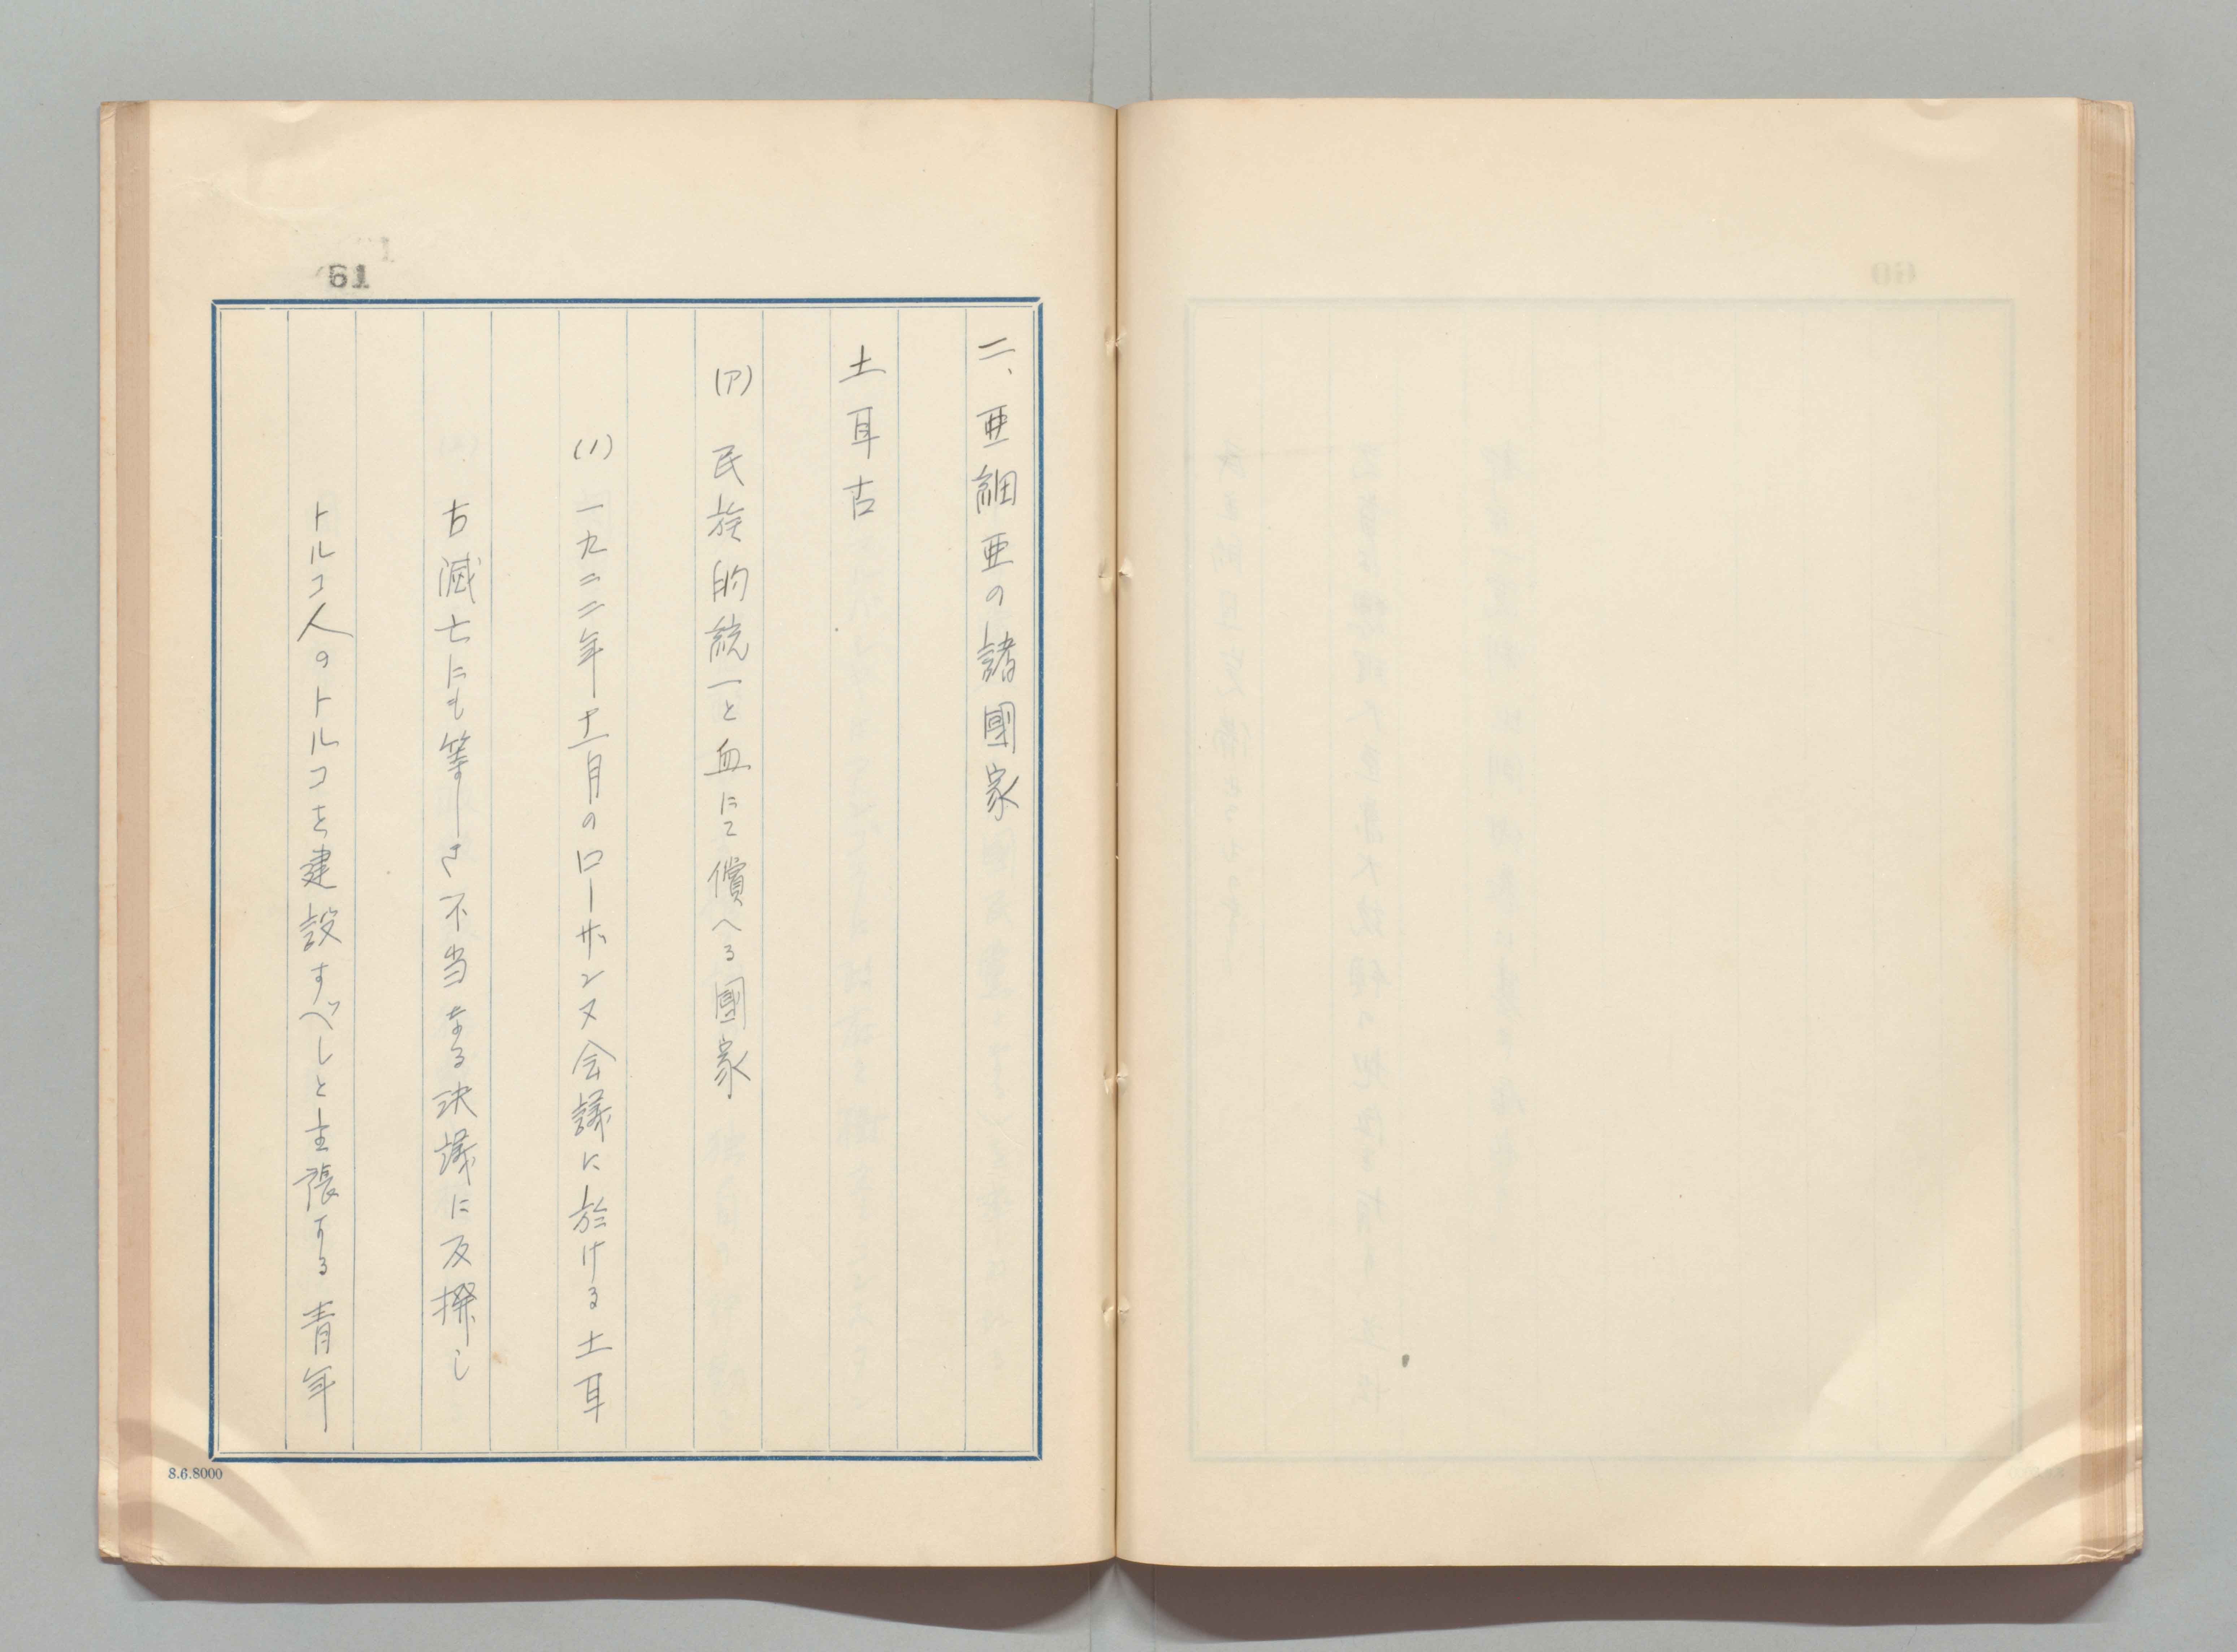 61
二、亜細亜の諸國家
土耳古
(ア) 民族的統一と血にて償へる國家
(1) 一九二二年十一月のローザンヌ会議に於ける土耳
古滅亡にも等しき不当なる決議に反撥し
トルコ人のトルコを建設すべしと主張する青年
8.6.8000